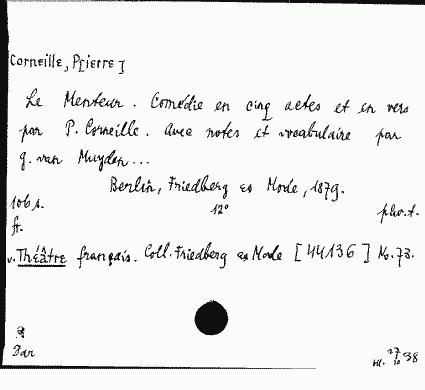 Corneille, P[ierre]
Le Menteur. Comédie en cinq actes et en vers
par P. Corneille. Avec notes et vocabulaire par
G. van Muyden...
Berlin, Friedberg & Mode, 1879.
106 p. 12°
fr.
v. Théâtre français. Coll. Friedberg & Mode [44136] No. 73.
Dar
27 38